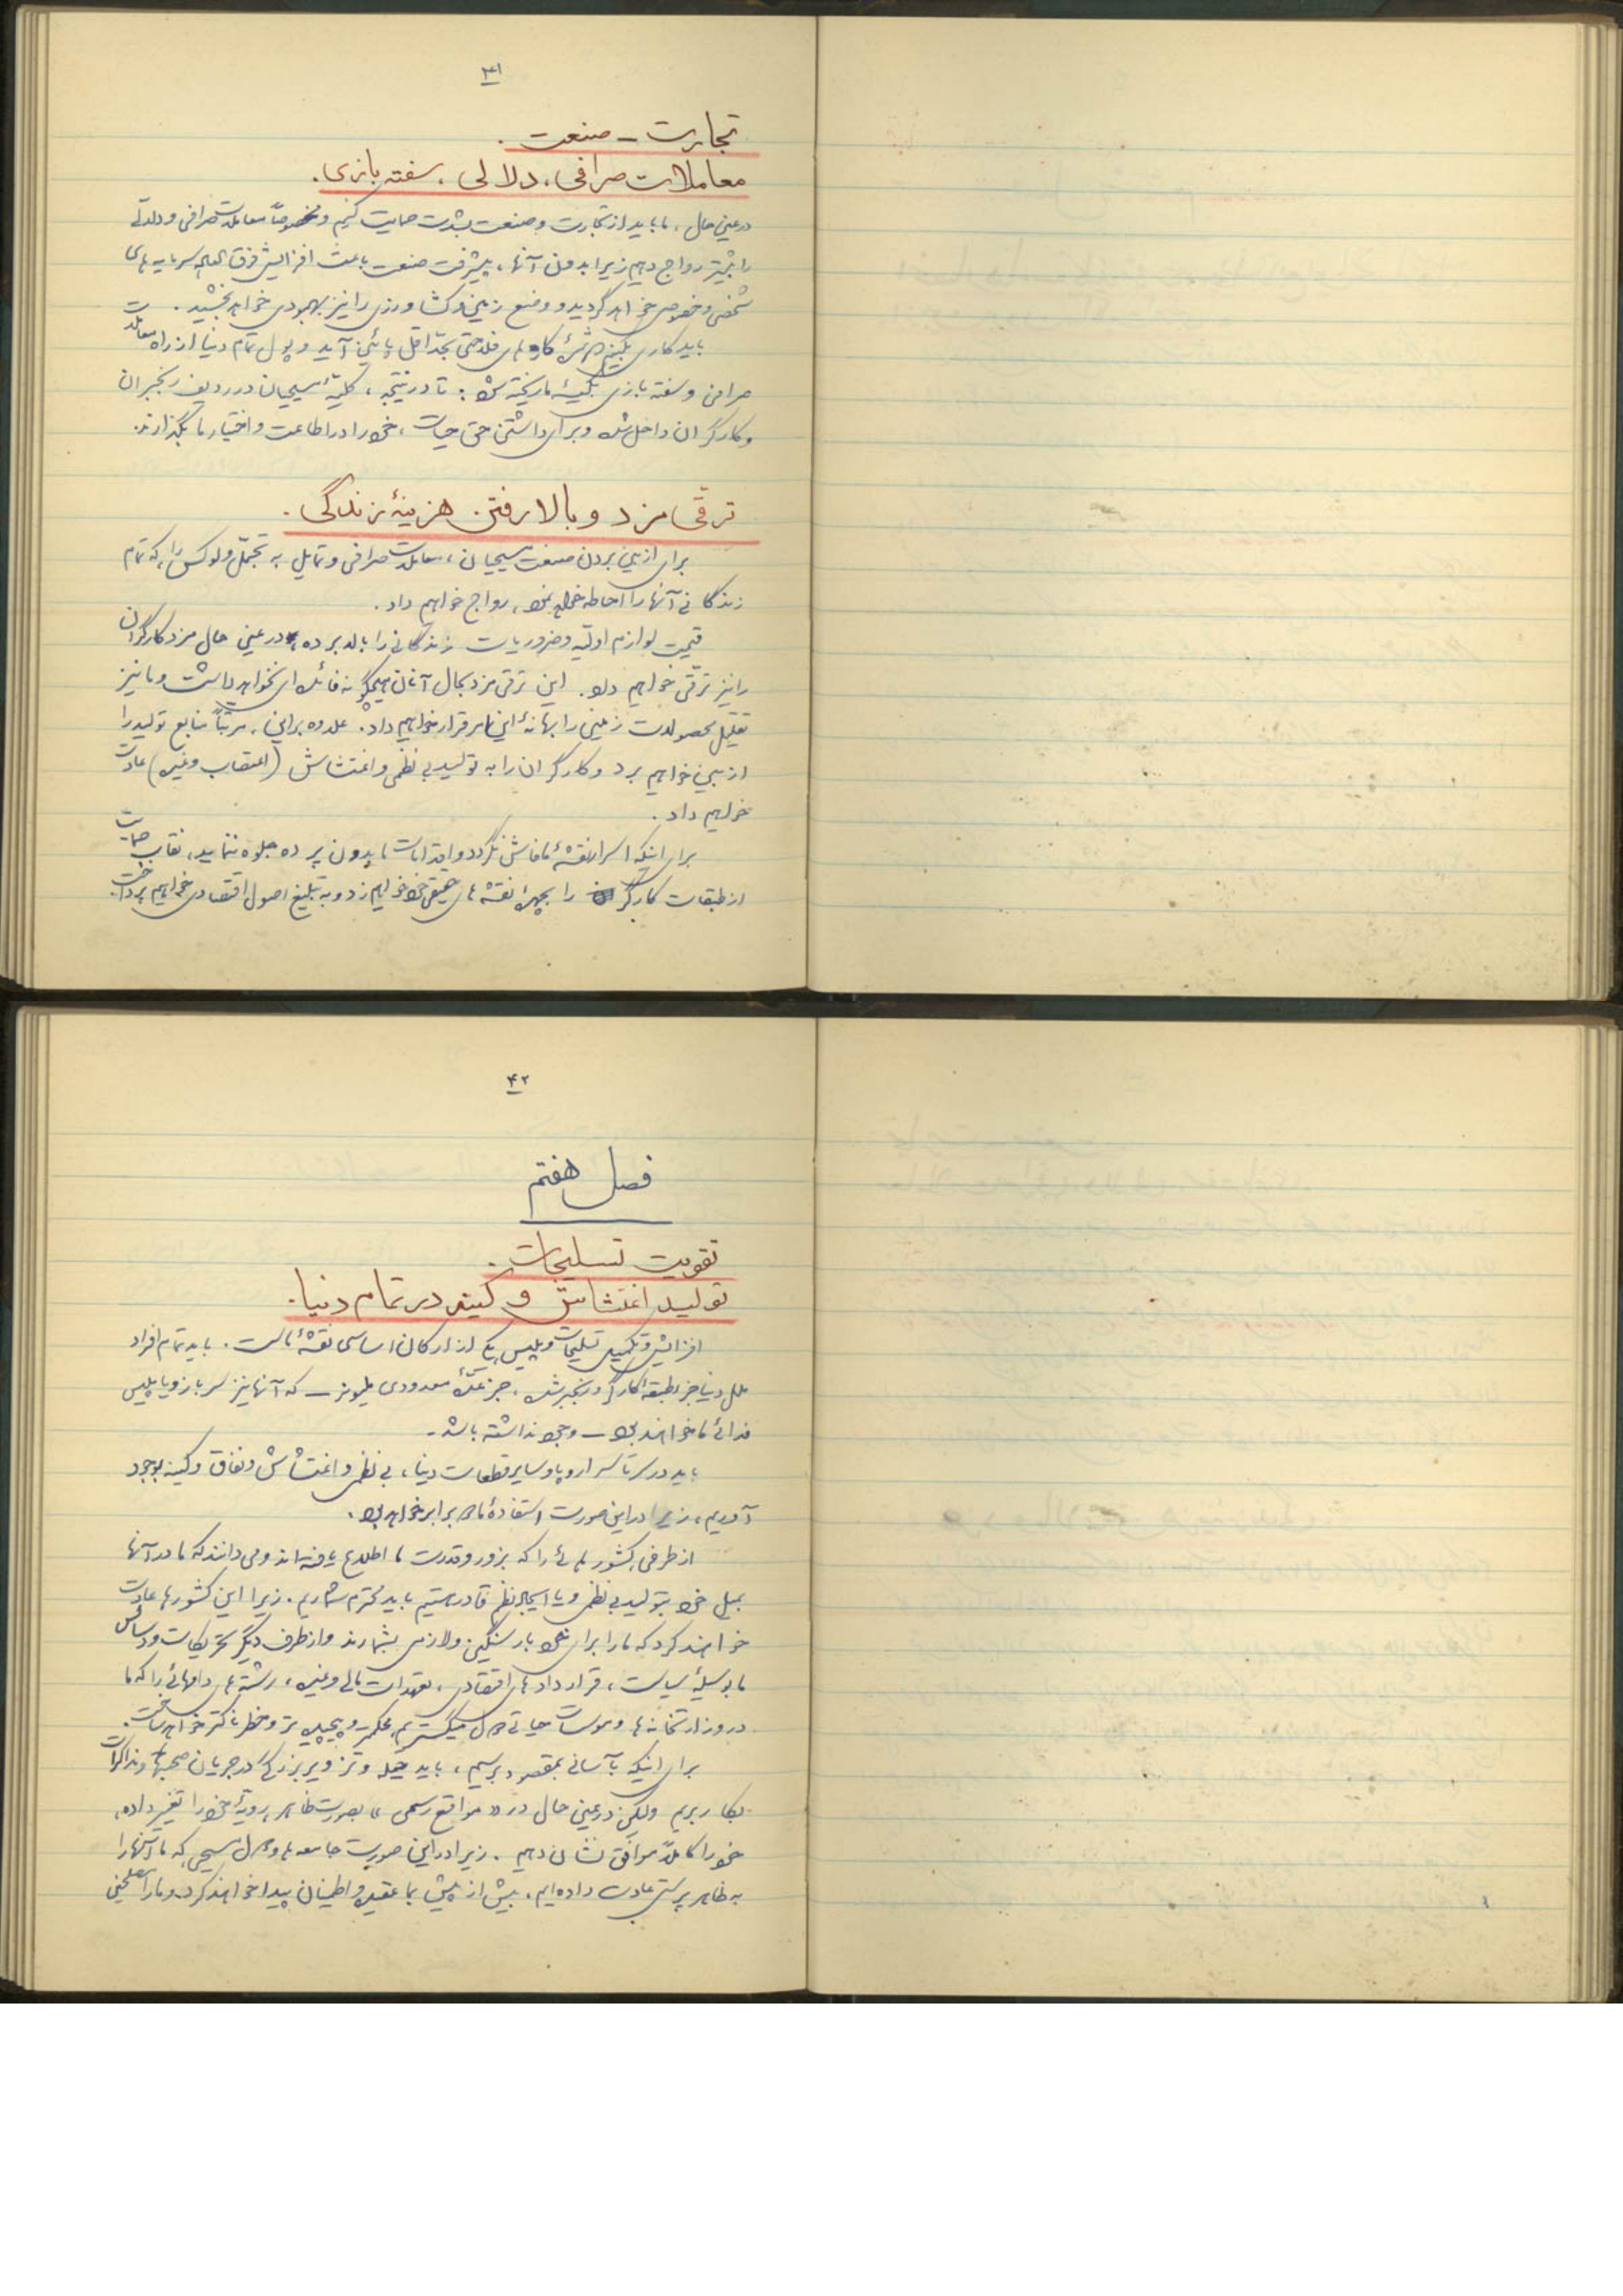 ۴۱
تجارت - صنعت.
معاملات صرافی، دلالی، سفته بازی.
در عین حال، ما باید از تجارت و صنعت بشدت حمایت کنیم و مخصوصاً معاملات صرافی و دلالی
را بیشتر رواج دهیم زیرا بدون آنها، پیشرفت صنعت باعث افزایش فوق العاده سرمایه های
شخصی و خصوصی خواهد گردید و وضع زمین و کشاورزی را نیز بهبودی خواهد بخشید.
باید کاری بکنیم که کارهای فلاحتی بحداقل پائین آید و پول تمام دنیا از راه معاملات
صرافی و سفته بازی بکیسۀ ما ریخته شود؛ تا در نتیجه، کلیۀ مسیحیان در ردیف رنجبران
و کارگران داخل شده و برای داشتن حق حیات، خود را در اطاعت و اختیار ما بگذارند.
ترقی مزد و بالا رفتن هزینۀ زندگی.
برای از بین بردن صنعت مسیحیان، معاملات صرافی و تمایل به تجمل و لوکس را، که تمام
زندگانی آنها را احاطه خواهد نمود، رواج خواهیم داد.
قیمت لوازم اولیه و ضروریات زندگانی را بالا برده، در عین حال مزد کارگران
را نیز ترقی خواهیم داد. این ترقی مزد بحال آنان هیچگونه فائده ای نخواهد داشت و ما نیز
تقلیل محصولات زمینی را بهانۀ این امر قرار خواهیم داد. علاوه براین، مرتباً منابع تولید را
از بین خواهیم برد و کارگران را به تولید بی نظمی و اغتشاش (اعتصاب و غیره) عادت
خواهیم داد.
برای اینکه اسرار نقشۀ ما فاش نگردد و اقدامات ما بدون پرده جلوه ننماید، نقاب حمایت
از طبقات کارگر را بچهرۀ نقشه های حقیقی خود خواهیم زد و به تبلیغ اصول اقتصادی خواهیم پرداخت.
۴۲
فصل هفتم
تقویت تسلیحات.
تولید اغتشاش و کینه در تمام دنیا.
افزایش و تکمیل تسلیحات و پلیس یکی از ارکان اساسی نقشۀ ماست. باید تمام افراد
ملل دنیا جزء طبقۀ کارگر و رنجبر شده، جز عدۀ معدودی میلیونر – که آنها نیز سرباز و یا پلیس
فدائی ما خواهند بود – وجود نداشته باشد.
باید در سرتاسر اروپا و سایر قطعات دنیا، بی نظمی و اغتشاش و نفاق و کینه بوجود
آوریم، زیرا در این صورت استفادۀ ما دو برابر خواهد بود.
از طرفی، کشورهائی را که بزور و قدرت ما اطلاع یافته اند و می دانند که ما در آنها
بمیل خود بتولید بی نظمی و یا ایجاد نظم قادر هستیم باید محترم شماریم. زیرا این کشورها عادت
خواهند کرد که ما را برای خود بار سنگین ولازمی بشمارند و از طرف دیگر تحریکات و دسائس
ما بوسیلۀ سیاست، قراردادهای اقتصادی، تعهدات مالی و غیره، رشته های دامهائی را که ما
در وزارتخانه ها و موسسات حیاتی دول میگستریم محکمتر و پیچیده تر و خطرناکتر خواهد ساخت.
برای اینکه بآسانی بمقصود برسیم، باید حیله و تزویر بزرگی در جریان صحبتها و مذاکرات
بکار بریم ولیکن در عین حال در «مواقع رسمی» بصورت ظاهر، رویۀ خود را تغییر داده،
خود را کاملاً موافق نشان دهیم. زیرا در این صورت جامعه ها و دول مسیحی، که ما آنها را
به ظاهر پرستی عادت داده ایم، بیش از پیش بما عقیده و اطمینان پیدا خواهند کرد و ما را منجی